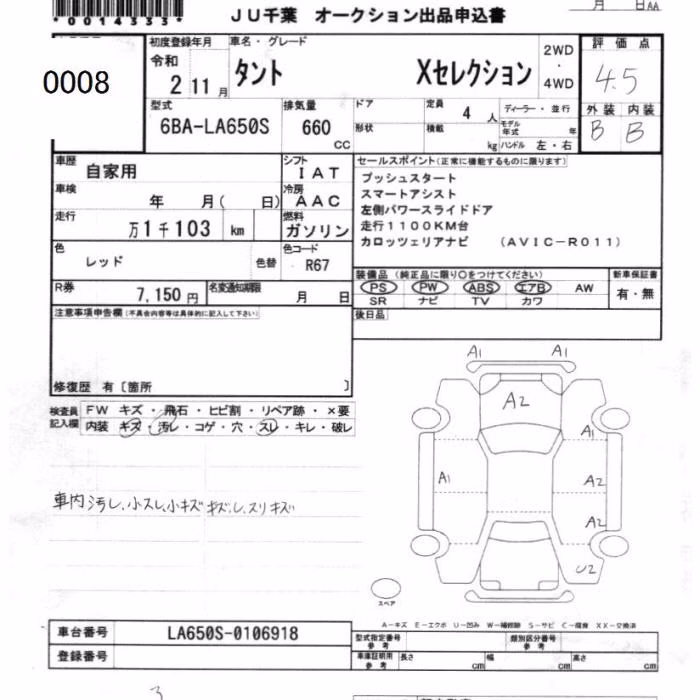 *0014333*
JU千葉 オークション出品申込書
月 日AA
0008
初度登録年月
令和
2 11月
車名・グレード
タント Xセレクション
2WD
・
4WD
評価点
4.5
外装 内装
B B
型式
6BA-LA650S
排気量
660
CC
ドア
形状
定員
4 人
積載
kg
ディーラー・並行
モデル年式 年
ハンドル 左・右
車歴
自家用
シフト
IAT
車検
年 月( 日)
冷房
AAC
走行
万1千103 km
燃料
ガソリン
色
レッド
色替
色コード
R67
R券
7,150円
名変通知期限
月 日
セールスポイント(正常に機能するものに限ります)
プッシュスタート
スマートアシスト
左側パワースライドドア
走行1100KM台
カロッツェリアナビ (AVIC-R011)
装備品(純正品に限り〇をつけてください)
PS PW ABS エアB AW
SR ナビ TV カワ
新車保証書
有・無
後日品
注意事項申告欄(不具合内容等は具体的に記入して下さい)
修復歴 有〔箇所 〕
検査員
記入欄
FW キズ・飛石・ヒビ割・リペア跡・×要
内装 キズ・汚レ・コゲ・穴・スレ・キレ・破レ
車内汚レ、小スレ、小キズ キズ、レ、スリキズ
A1 A1
A2
A1
A1
A2
A2
U2
スペア
A-キズ E-エクボ U-凹み W-補修跡 S-サビ C-腐食 XX-交換済
車台番号
LA650S-0106918
登録番号
型式指定番号
参考
類別区分番号
参考
車庫証明用
参考
長さ cm 幅 cm 高さ cm
3